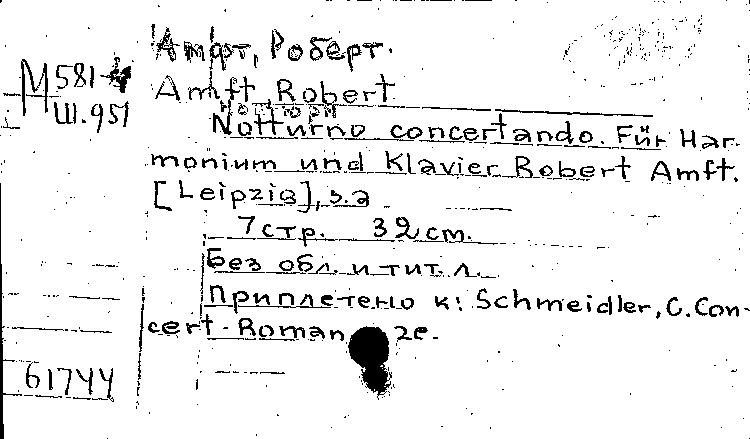 Амфт, Роберт.
М581-4
Ш.951
Amft Robert
Notturno concertando. Für Har-
monium und Klavier Robert Amft.
[Leipzig], s.a.
7 стр. 32 см.
Без обл. и тит. л.
Приплетено к: Schmeidler, C. Con-
cert-Roman ze.
61744